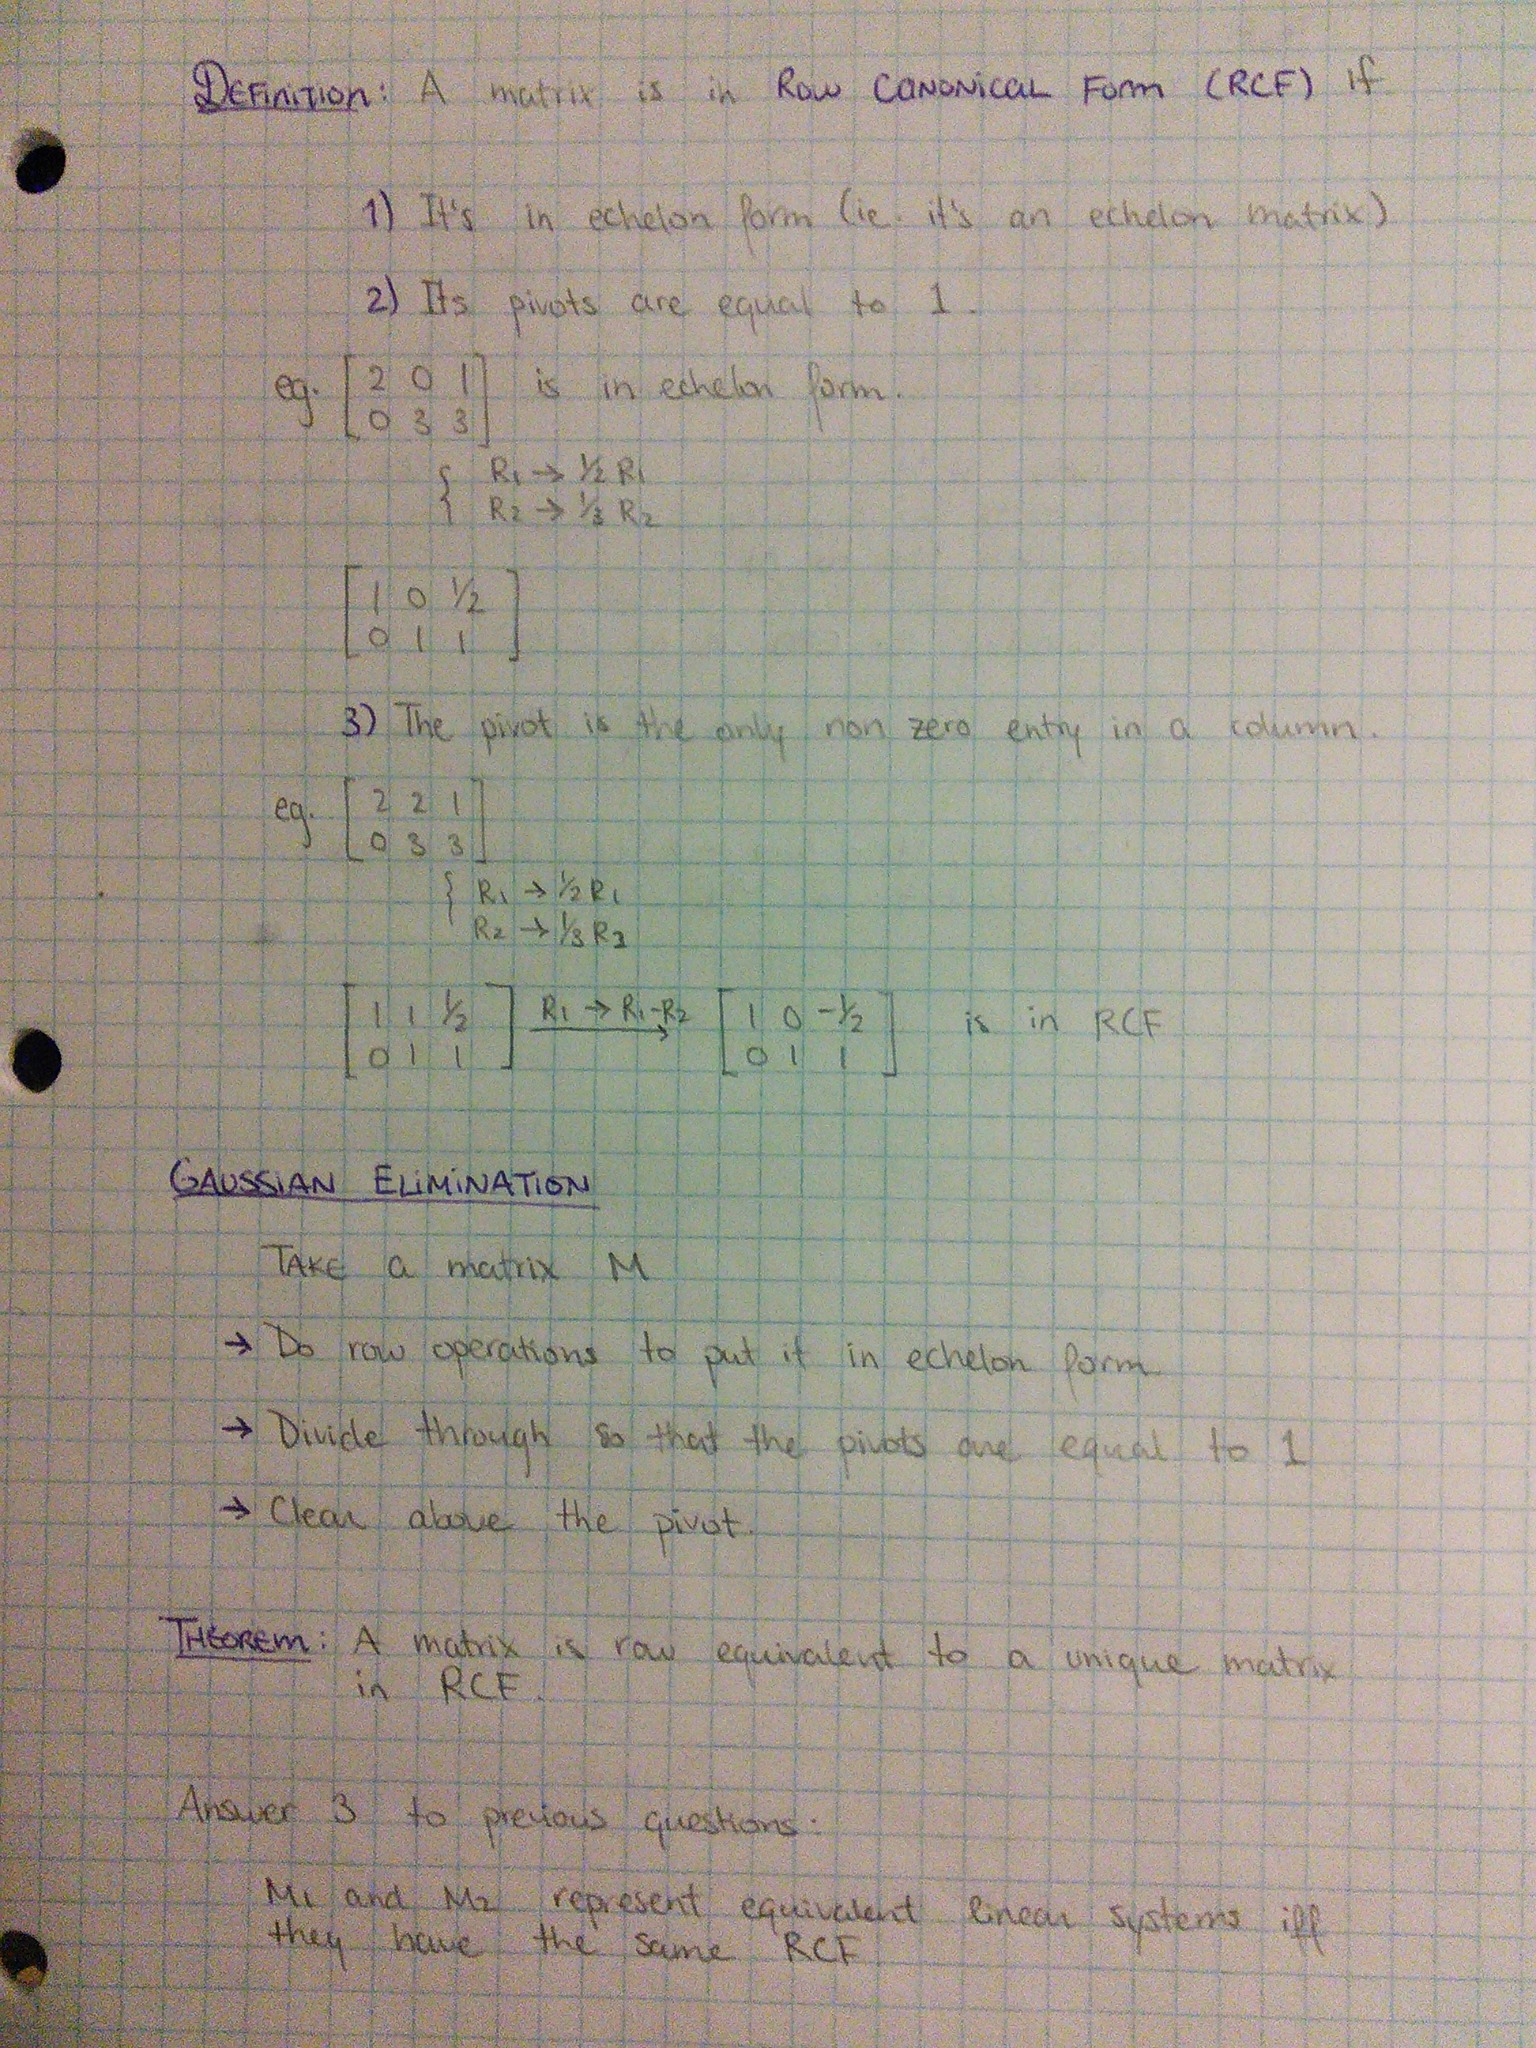 DEFINITION: A matrix is in ROW CANONICAL FORM (RCF) if
1) It's in echelon form (ie. it's an echelon matrix)
2) Its pivots are equal to 1.
eg. [2 0 1] is in echelon form.
[0 3 3]
{ R1 → 1/2 R1
R2 → 1/3 R2
[1 0 1/2]
[0 1 1]
3) The pivot is the only non zero entry in a column.
eg. [2 2 1]
[0 3 3]
{ R1 → 1/2 R1
R2 → 1/3 R2
[1 1 1/2] R1 → R1-R2 [1 0 -1/2] is in RCF
[0 1 1] [0 1 1]
GAUSSIAN ELIMINATION
TAKE a matrix M
→ Do row operations to put it in echelon form
→ Divide through so that the pivots are equal to 1
→ Clear above the pivot.
THEOREM: A matrix is row equivalent to a unique matrix
in RCF.
Answer 3 to previous questions:
M1 and M2 represent equivalent linear systems iff
they have the same RCF